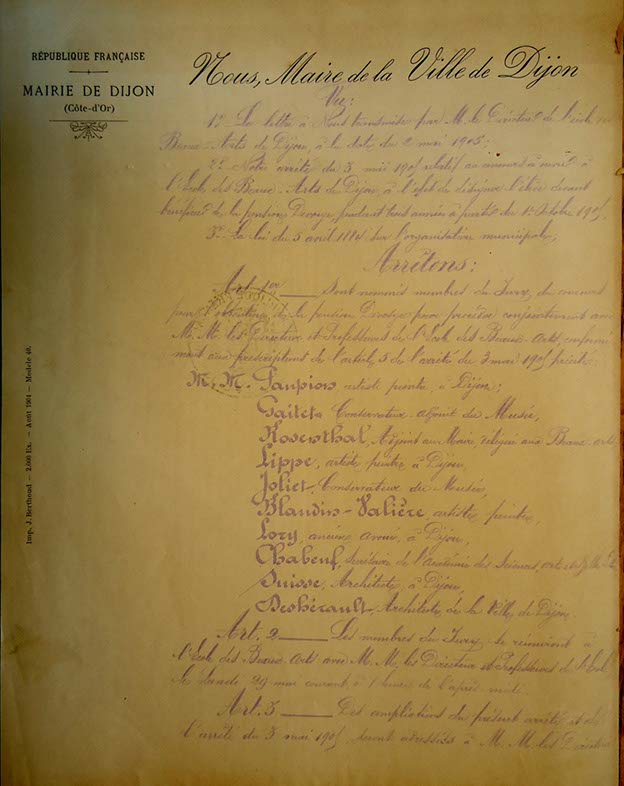 RÉPUBLIQUE FRANÇAISE
MAIRIE DE DIJON
(Côte-d'Or)
Nous, Maire de la Ville de Dijon
Vu:
1º La lettre à Nous transmise par M. le Directeur de l'École des
Beaux-Arts de Dijon, à la date du 2 mai 1905;
2º Notre arrêté du 3 mai 1905 relatif au concours à ouvrir à
l'École des Beaux-Arts de Dijon, à l'effet de désigner l'élève devant
bénéficier de la pension Devosge, pendant trois années à partir du 1er Octobre 1905.
3º La loi du 5 avril 1884 sur l'organisation municipale;
Arrêtons:
Art. 1er Sont nommés membres du Jury du concours
pour l'obtention de la pension Devosge pour procéder conjointement avec
M. M. les Directeur et Professeurs de l'École des Beaux-Arts, conformé-
ment aux prescriptions de l'article 5 de l'arrêté du 3 mai 1905 précité:
M. M. artiste peintre, à Dijon;
Gaitet Conservateur-adjoint du Musée,
Rosenthal, Adjoint au Maire, délégué aux Beaux-arts
Lippe, artiste peintre à Dijon,
Joliet, Conservateur du Musée,
Blandin-Valière artiste peintre,
Lory, ancien avoué, à Dijon,
Chabeuf, Secrétaire de l'Académie des Sciences, arts et Belles-Lettres
Suisse, Architecte, à Dijon,
Deshérault, Architecte de la Ville de Dijon.
Art. 2 Les membres du Jury se réuniront à
l'École des Beaux-Arts avec M. M. les Directeur et Professeurs de l'École
le 29 mai courant à 1 heure de l'après-midi.
Art. 3 Des ampliations du présent arrêté et de
l'arrêté du 3 mai 1905 seront adressées à M. M. les Directeur
Imp. J. Berthoud. — 2.000 Ex. — Août 1904 — Modèle 40.